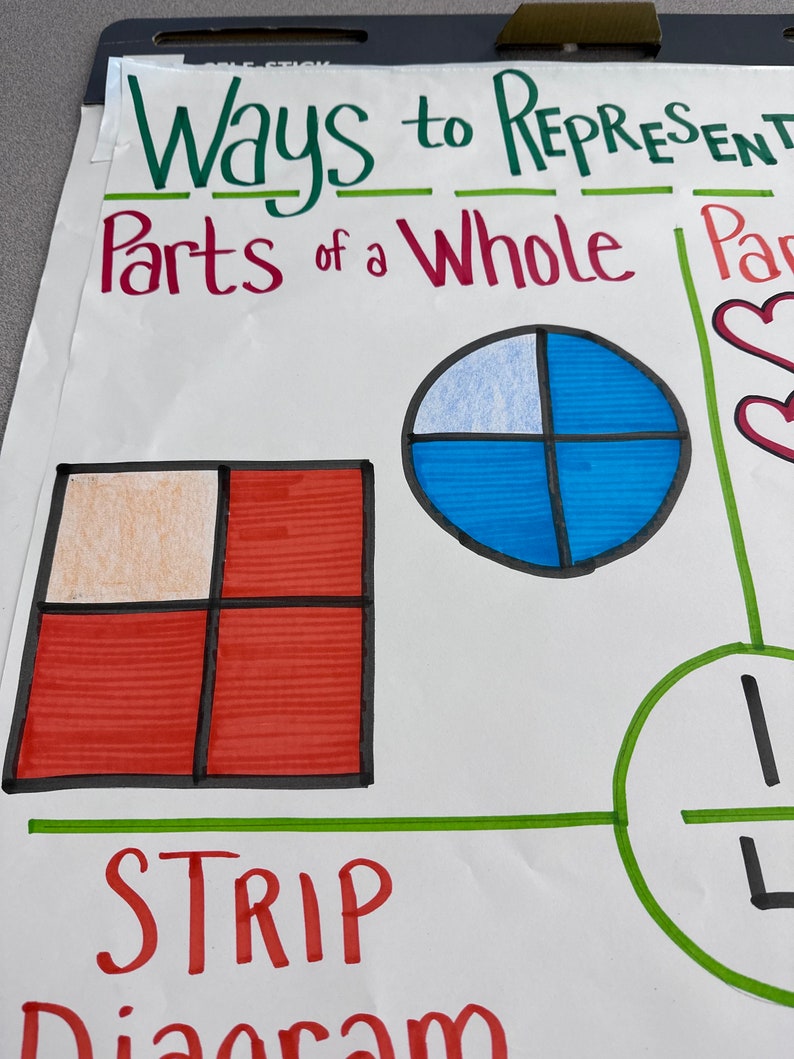 SELF-STICK
Ways to REPRESENT
Parts of a Whole
Par
STRIP
Diagram